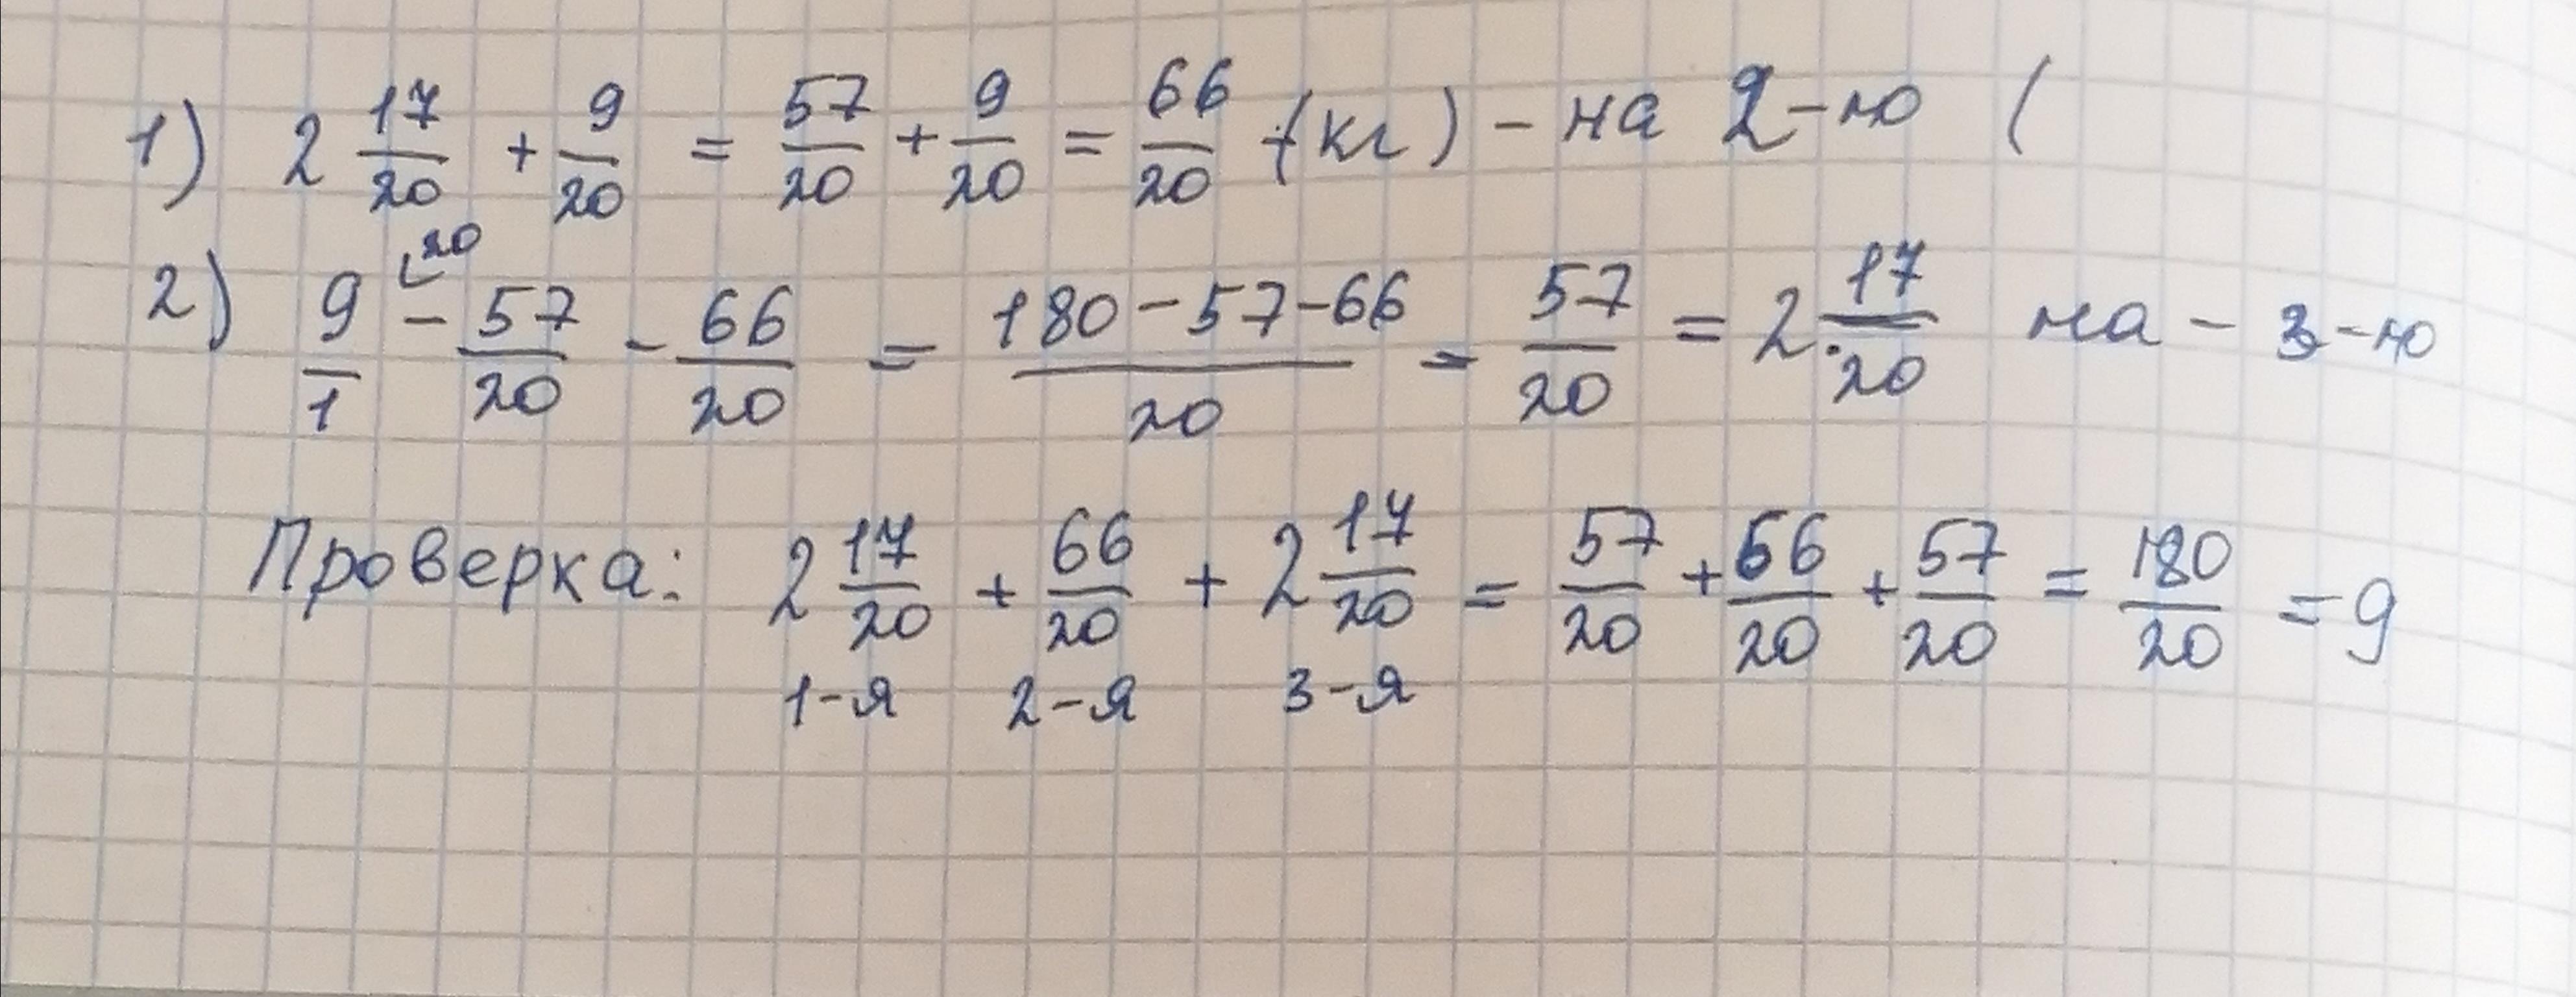 1) 2 17/20 + 9/20 = 57/20 + 9/20 = 66/20 (кг) - на 2-ю (
2) 9/1 - 57/20 - 66/20 = 180-57-66/20 = 57/20 = 2 17/20 на - 3-ю
20
Проверка: 2 17/20 + 66/20 + 2 17/20 = 57/20 + 66/20 + 57/20 = 180/20 = 9
1-я 2-я 3-я